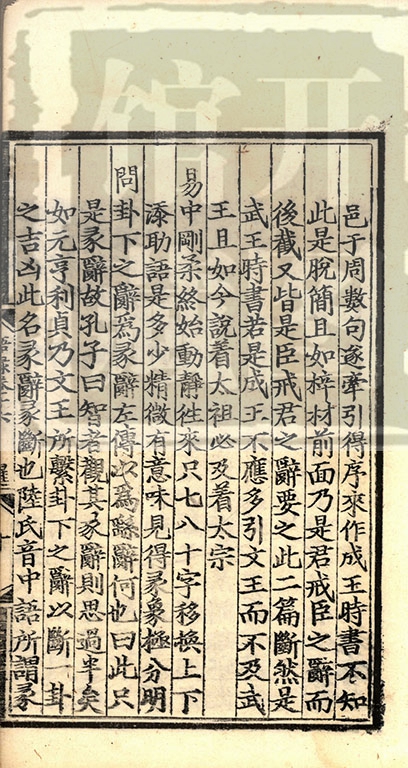 邑于周數句遂牽引得序來作成王時書不知
此是脫簡且如梓材前面乃是君戒臣之辭而
後截又皆是臣戒君之辭要之此二篇斷然是
武王時書若是成王不應多引文王而不及武
王且如今說着太祖必及着太宗
易中剛柔終始動靜徃來只七八十字移換上下
添助語是多少精微有意味見得彖象極分明
問卦下之辭爲彖辭左傳以爲繇辭何也曰此只
是彖辭故孔子曰智者觀其彖辭則思過半矣
如元亨利貞乃文王所繫卦下之辭以斷一卦
之吉凶此名彖辭彖斷也陸氏音中語所謂彖